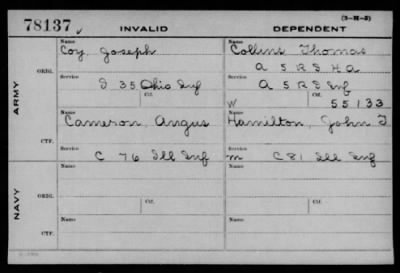 (3-M-3)
78137 INVALID DEPENDENT
Name Name
Coy, Joseph Collins Thomas
A 5 R S H A
ORIG. Service Service
I 35 Ohio Inf A 5 R S Inf
Ctf. Ctf.
W 55133
ARMY
Name Name
Cameron, Angus Hamilton, John T
CTF. Service Service
C 76 Ill Inf m C 81 Ill Inf
NAVY
Name Name
ORIG. Service Service
Ctf. Ctf.
Name Name
CTF. Service Service